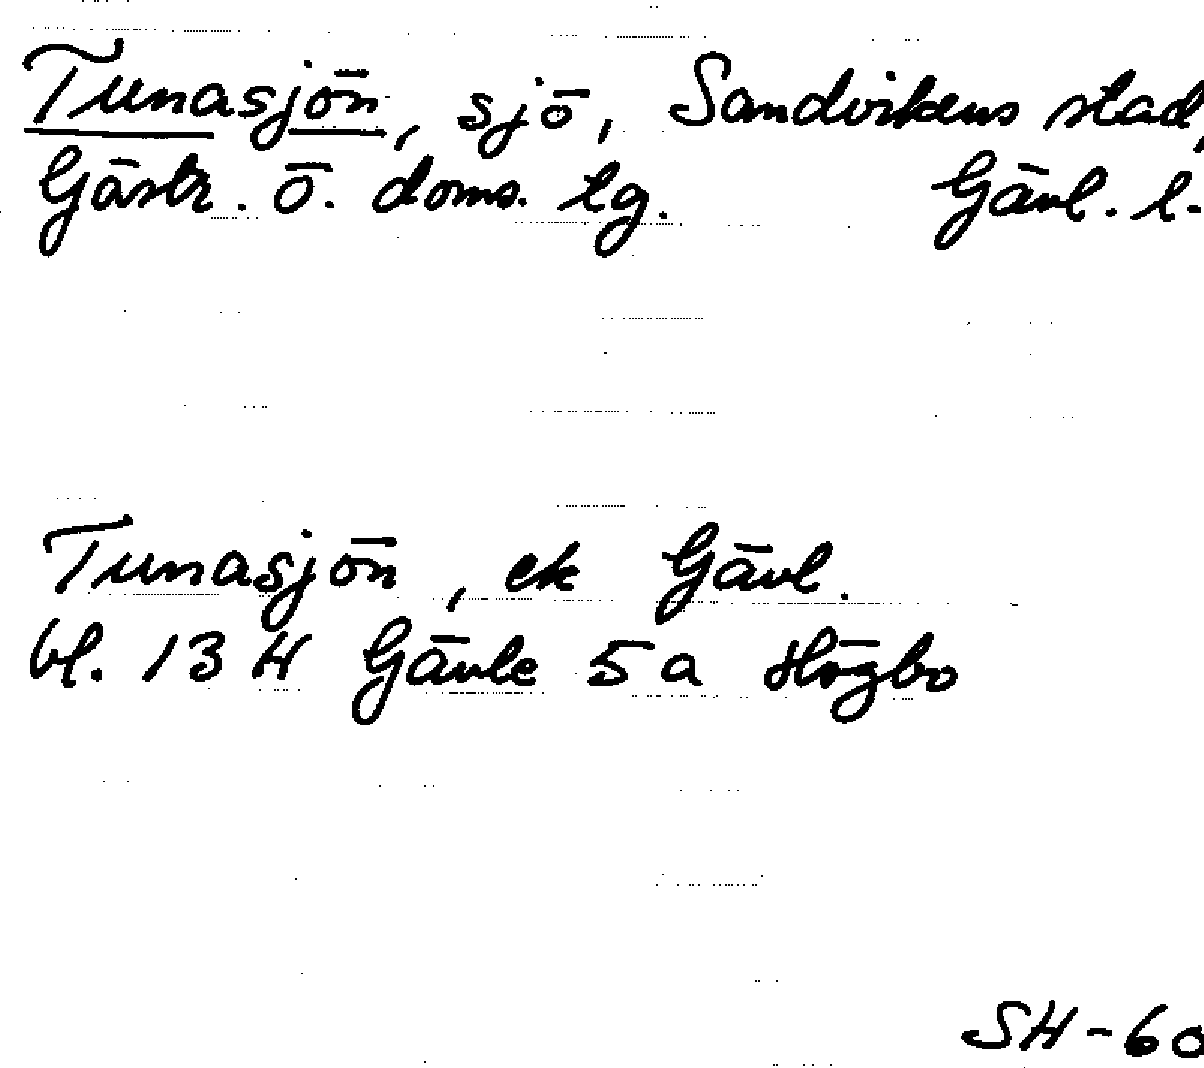 Tunasjön, sjö, Sandvikens stad,
Gästr. ö. doms. tg. Gävl. l.
Tunasjön, ek Gävl.
bl. 13 H Gävle 5 a Högbo
SH-60